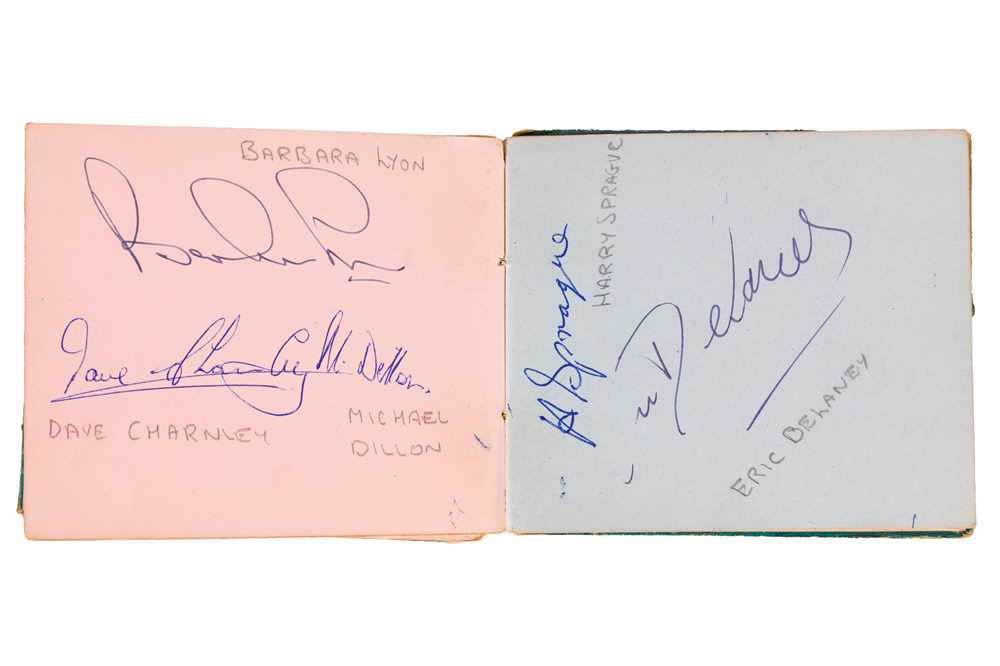 BARBARA LYON
Barbara Lyon
Dave Charnley M. Dillon.
DAVE CHARNLEY
MICHAEL
DILLON
H Sprague
HARRY SPRAGUE
Delaney
ERIC DELANEY